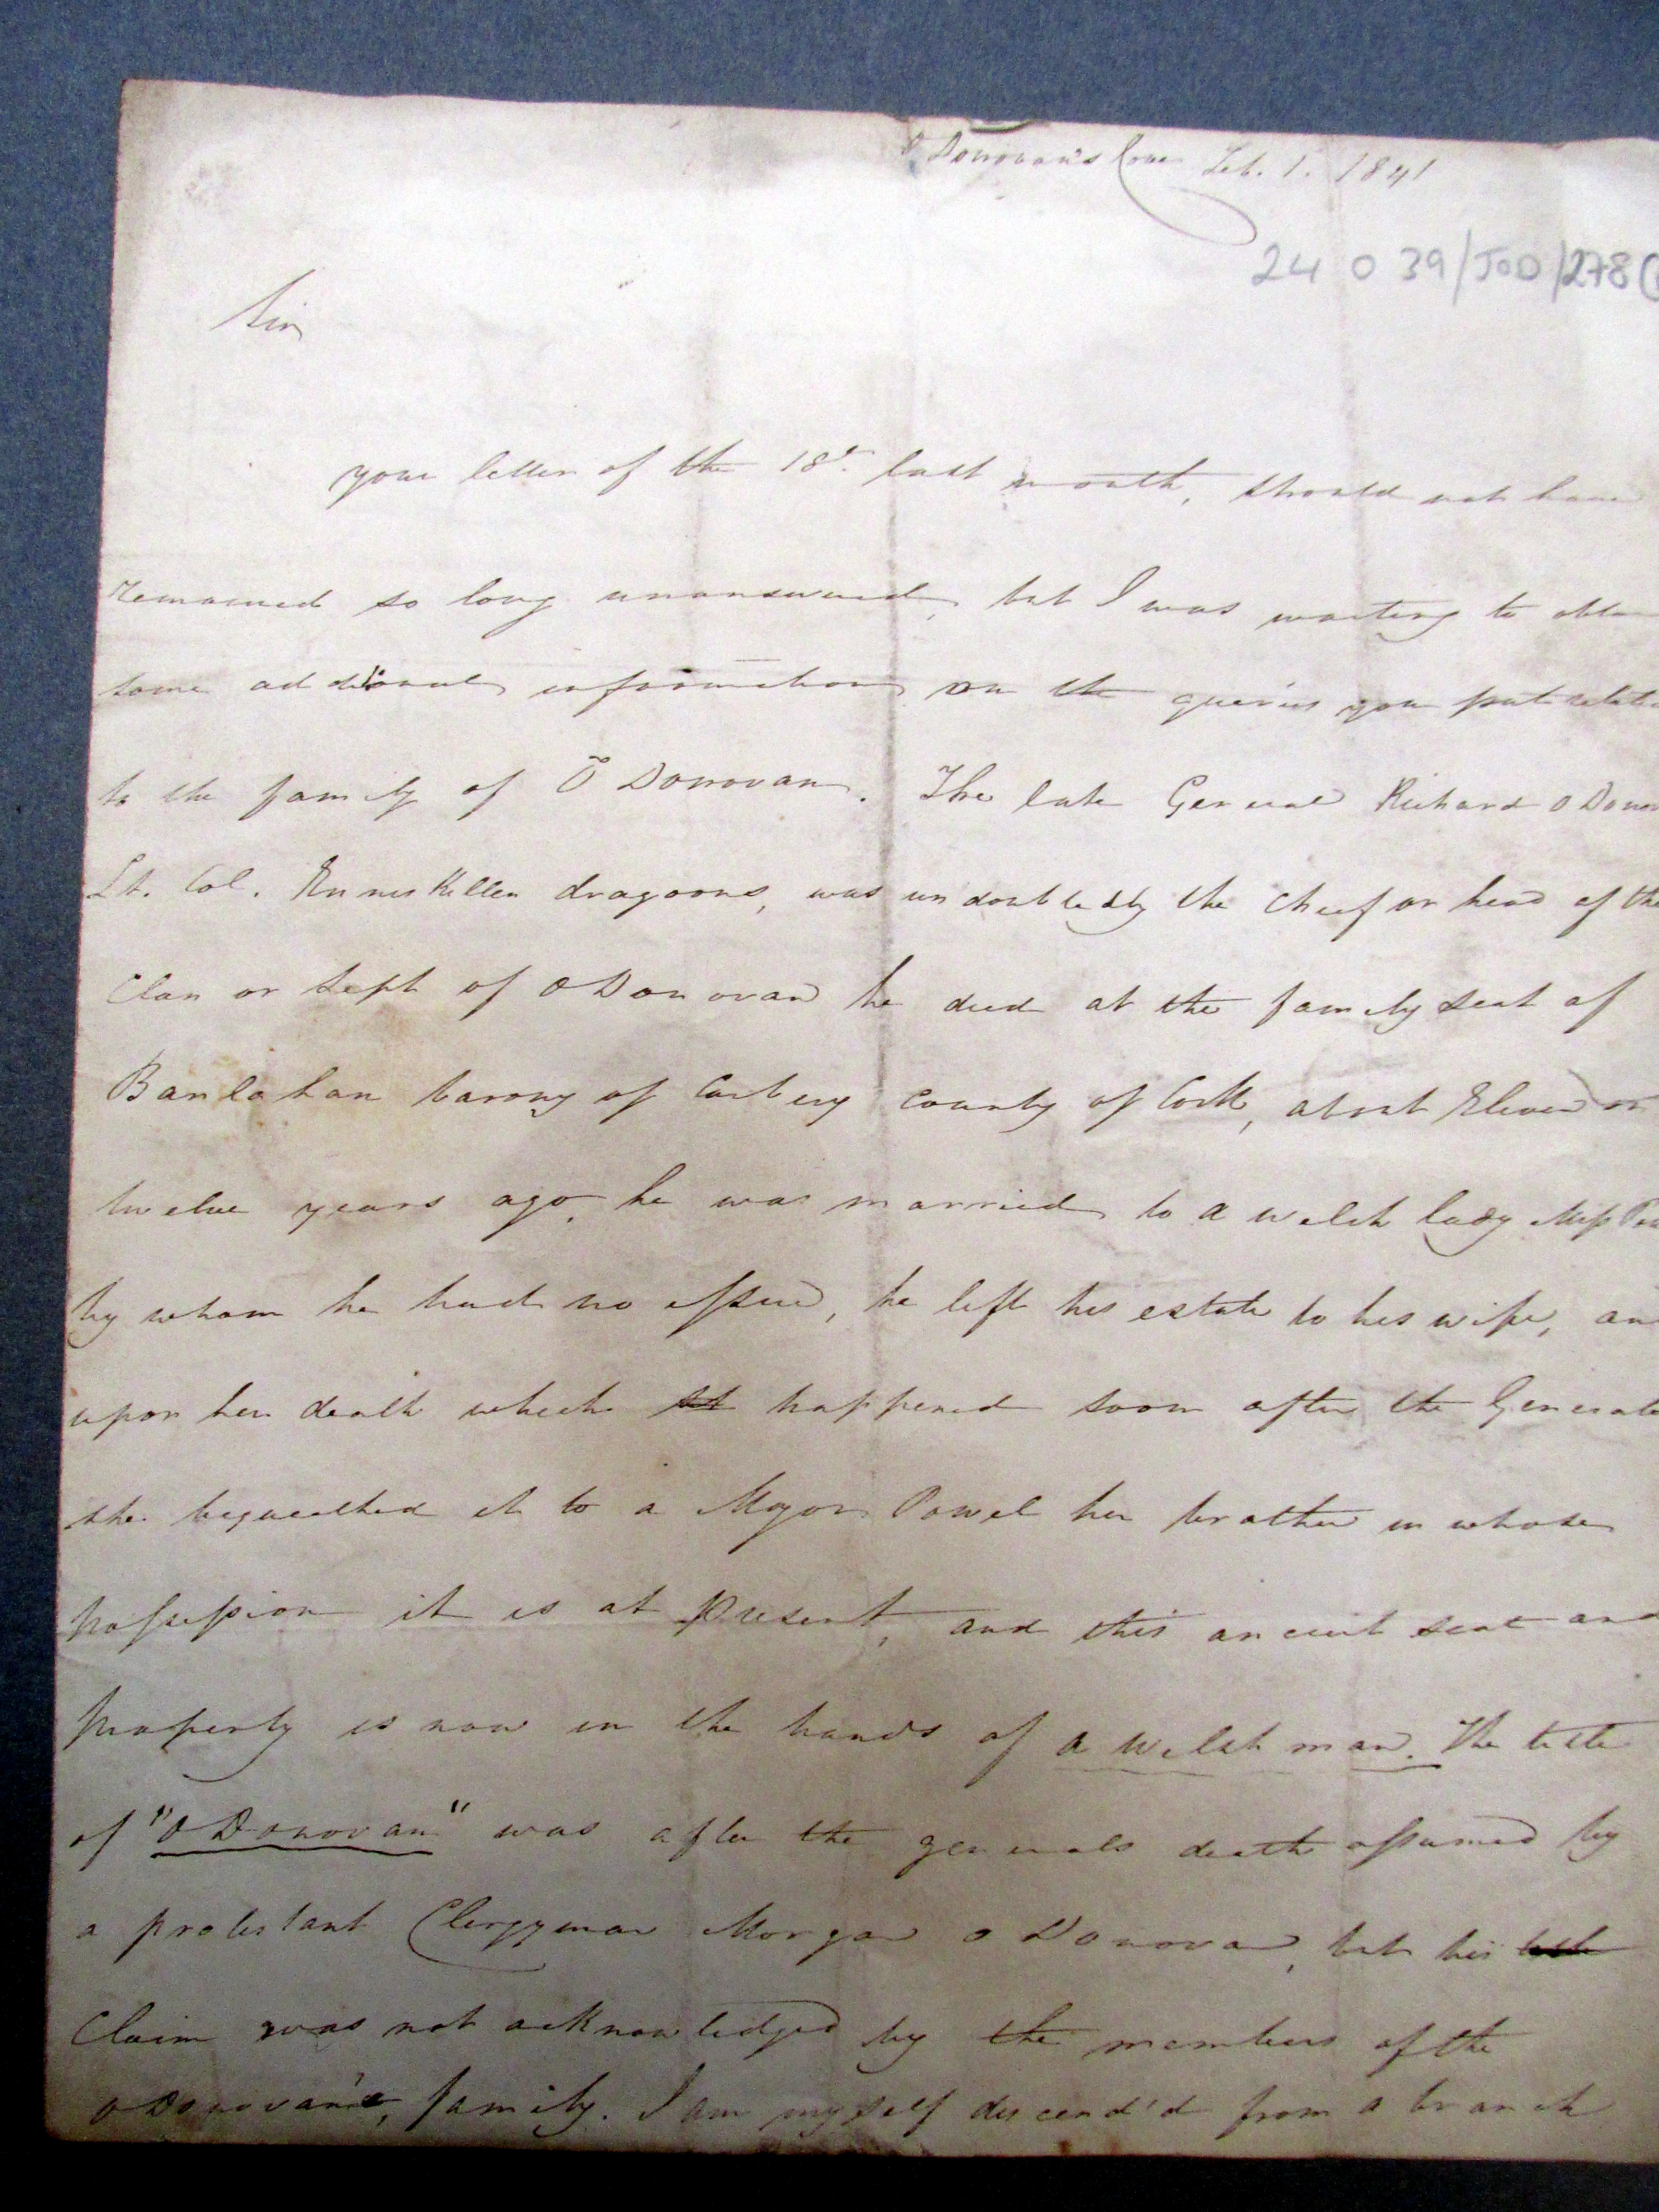 O Donovan's Cove Feb. 1. 1841
24 O 39/JOD/278(
Sir
your letter of the 18th. last month, should not have
remained so long unanswered, but I was waiting to obta
some additional information on the queries you put relati
to the family of O Donovan. The late General Richard O Donov
Lt. Col. Enniskillen dragoons, was undoubtedly the Chief or head of the
Clan or Sept of O Donovan he died at the family seat of
Banlahan barony of Carbery County of Cork, about Eleven or
twelve years ago, he was married to a welsh lady Miss Po
by whom he had no issue, he left his estate to his wife, an
upon her death which happened soon after the Generals
she bequeathed it to a Major Powel her brother in whose
possession it is at present, and this ancient seat and
property is now in the hands of a Welsh man. The title
of "O Donovan" was after the generals death assumed by
a protestant Clergyman Morgan O Donovan, but his
Claim was not acknowledged by the members of the
O Donovan's, family. I am myself descend'd from a branch